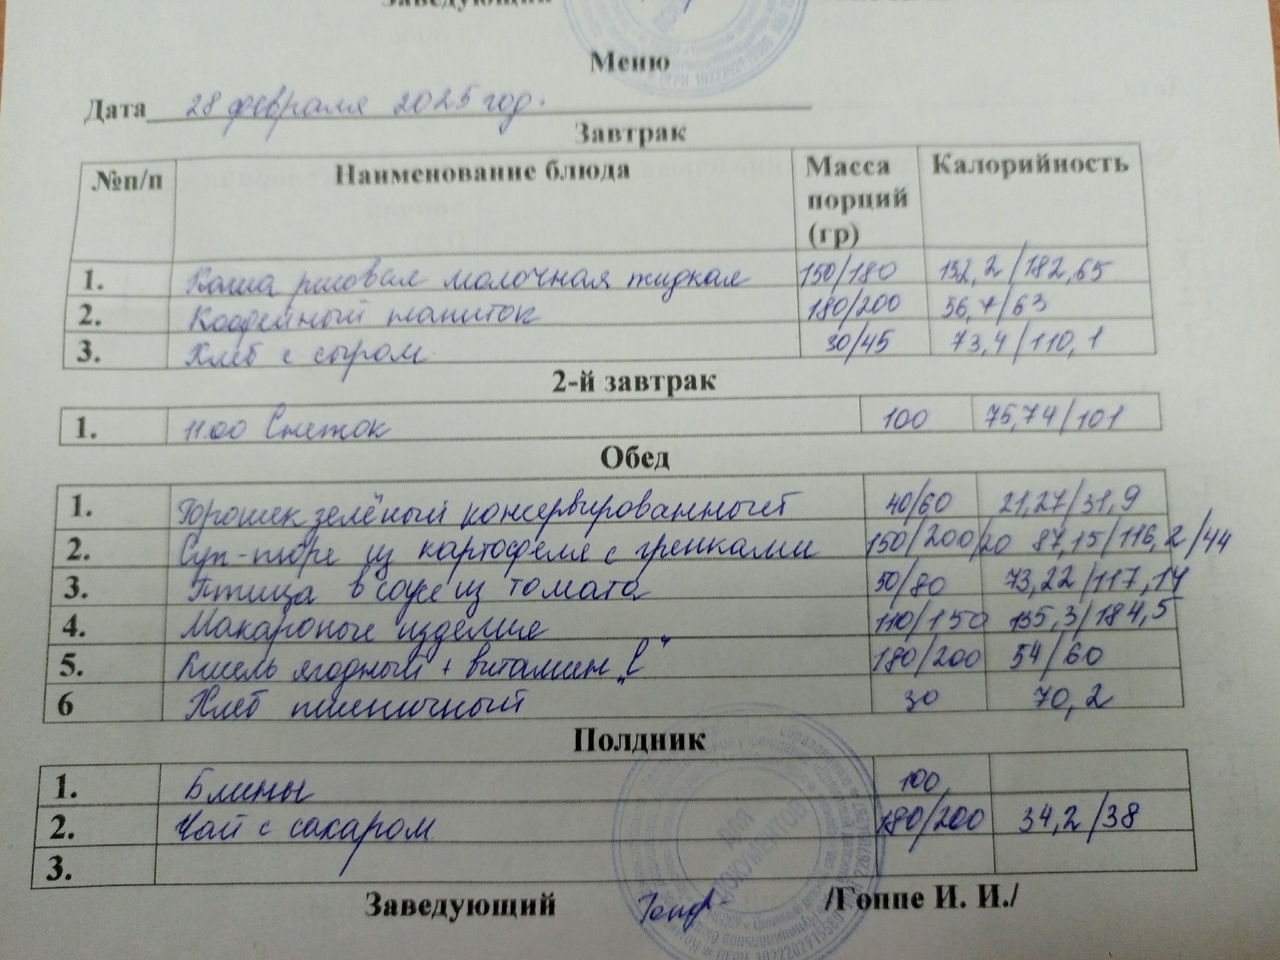 Заведующий
Меню
Дата 28 февраля 2025 год.
Завтрак
№п/п Наименование блюда Масса порций (гр) Калорийность
1. Каша рисовая молочная жидкая 150/180 152,2/182,65
2. Кофейный напиток 180/200 56,7/63
3. Хлеб с сыром 30/45 73,4/110,1
2-й завтрак
1. 11.00 Снежок 100 75,74/101
Обед
1. Горошек зелёный консервированный 40/60 21,27/31,9
2. Суп-пюре из картофеля с гренками 150/200/20 87,15/116,2/44
3. Птица в соусе из томата 50/80 73,22/117,14
4. Макароные изделие 110/150 135,3/184,5
5. Кисель ягодный + витамин "С" 180/200 54/60
6 Хлеб пшеничный 30 70,2
Полдник
1. Блины 100
2. Чай с сахаром 180/200 34,2/38
3.
Заведующий /Гоппе И. И./
ДЛЯ ДОКУМЕНТОВ